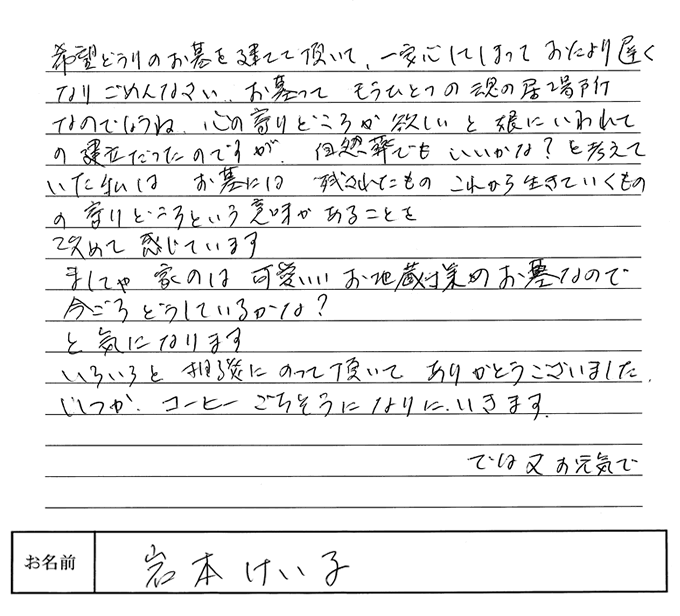 希望どうりのお墓を建てて頂いて、一安心してしまって おたより遅く
なりごめんなさい。お墓って もうひとつの魂の居場所
なのでしょうね。心の寄りどころが欲しいと娘にいわれて
の建立だったのですが、自然葬でも いいかな?と考えて
いた私は お墓には 残されたもの これから生きていくもの
の寄りどころという意味があることを
改めて感じています
ましてや 家のは 可愛いい お地蔵様のお墓なので
今ごろどうしているかな?
と気になります
いろいろと相談にのって頂いて ありがとうございました。
いつか、コーヒーごちそうになりに、いきます。
では又お元気で
お名前 岩本けい子